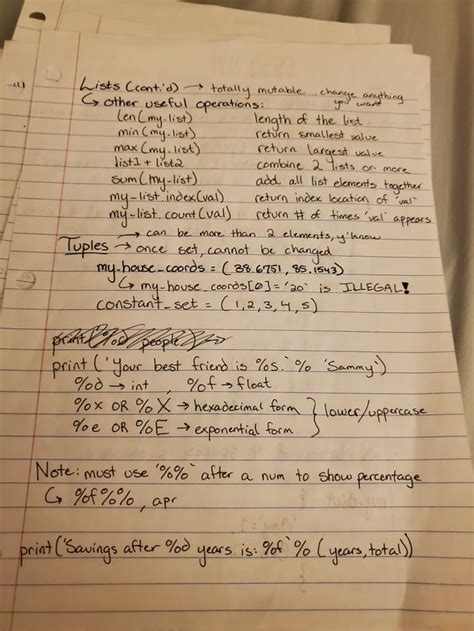 Lists (cont.'d) → totally mutable... change anything you want
↳ other useful operations:
len(my-list) length of the list
min(my-list) return smallest value
max(my-list) return largest value
list1 + list2 combine 2 lists or more
sum(my-list) add all list elements together
my-list.index(val) return index location of 'val'
my-list.count(val) return # of times 'val' appears
→ can be more than 2 elements, y'know
Tuples → once set, cannot be changed
my-house_coords = (38.6751, 85.1543)
↳ my-house_coords[0] = '20' is ILLEGAL!
constant_set = (1,2,3,4,5)
print ('Your best friend is %s.' % 'Sammy')
%d → int , %f → float
%x OR %X → hexadecimal form } lower/uppercase
%e OR %E → exponential form
Note: must use '%%' after a num to show percentage
↳ %f%%, apr
print('Savings after %d years is: %f' % (years, total))